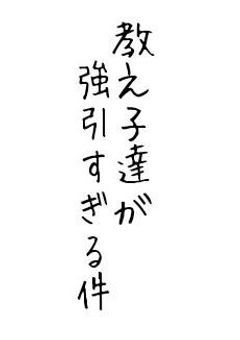 教え子達が
強引すぎる件